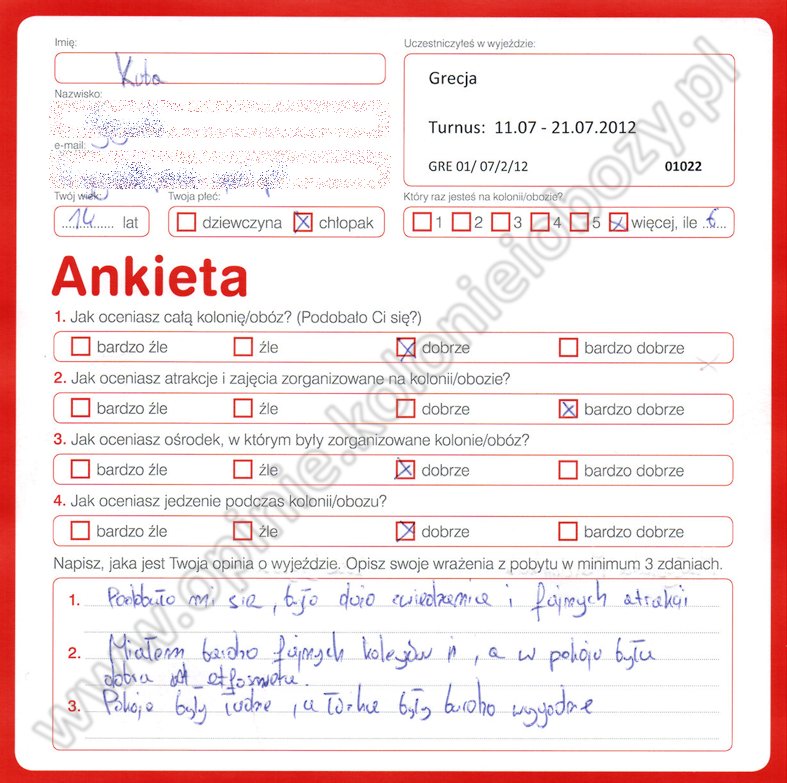 Imię:
Kuba
Uczestniczyłeś w wyjeździe:
Grecja
Turnus: 11.07 - 21.07.2012
GRE 01/ 07/2/12 01022
Nazwisko:
e-mail:
Twój wiek:
14 lat
Twoja płeć:
dziewczyna chłopak
Który raz jesteś na kolonii/obozie?
1 2 3 4 5 więcej, ile ..6...
Ankieta
1. Jak oceniasz całą kolonię/obóz? (Podobało Ci się?)
bardzo źle źle dobrze bardzo dobrze
2. Jak oceniasz atrakcje i zajęcia zorganizowane na kolonii/obozie?
bardzo źle źle dobrze bardzo dobrze
3. Jak oceniasz ośrodek, w którym były zorganizowane kolonie/obóz?
bardzo źle źle dobrze bardzo dobrze
4. Jak oceniasz jedzenie podczas kolonii/obozu?
bardzo źle źle dobrze bardzo dobrze
Napisz, jaka jest Twoja opinia o wyjeździe. Opisz swoje wrażenia z pobytu w minimum 3 zdaniach.
1. Podobało mi się, było dużo zwiedzania i fajnych atrakcji
2. Miałem bardzo fajnych kolegów, a w pokoju była
dobra atmosfera.
3. Pokoje były ładne, a łóżka były bardzo wygodne
www.opinie.kolonieiobozy.pl